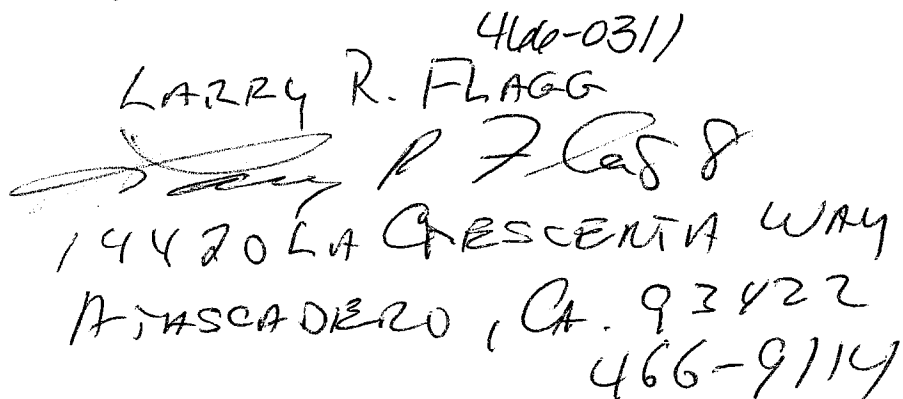 466-0311
LARRY R. FLAGG
Larry R Flagg
14420 LA CRESCENTA WAY
ATASCADERO, CA. 93422
466-9114